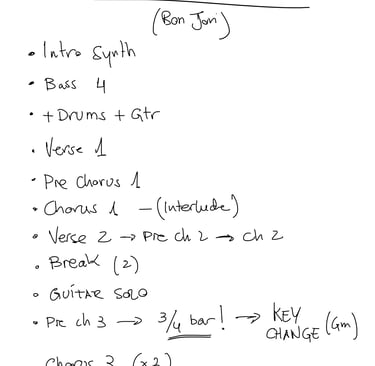 (Bon Jovi)
• Intro Synth
• Bass 4
• + Drums + Gtr
• Verse 1
• Pre Chorus 1
• Chorus 1 – (Interlude)
• Verse 2 → Pre ch 2 → ch 2
• Break (2)
• GUITAR SOLO
• Pre ch 3 → 3/4 bar! → KEY CHANGE (Gm)
Chorus 3 (x2)